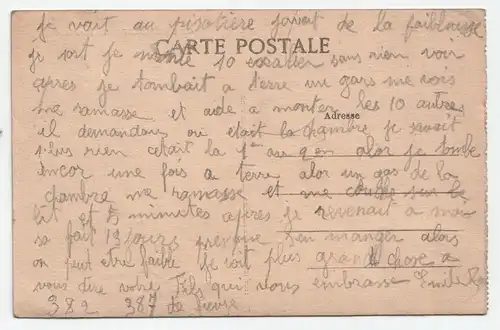 je vait au pisotière javait de la faiblesse
CARTE POSTALE
je sort je monte 10 escalier sans rien voir
apres je tombait a terre un gars me vois
me ramasse et aide a monter les 10 autres
Adresse
il demandai ou etait la chambre je savait
plus rien cetait la 1er alor je tombe
encor une fois a terre alor un gas de la
chambre me ramasse et me couche sur le
lit et 5 minutes apres je revenait a moi
sa fait 13 jours presque sen manger alors
on peut etre faible je sait plus grand chose a
vous dire votre fils qui vous embrasse Emile
382 387 de fievre